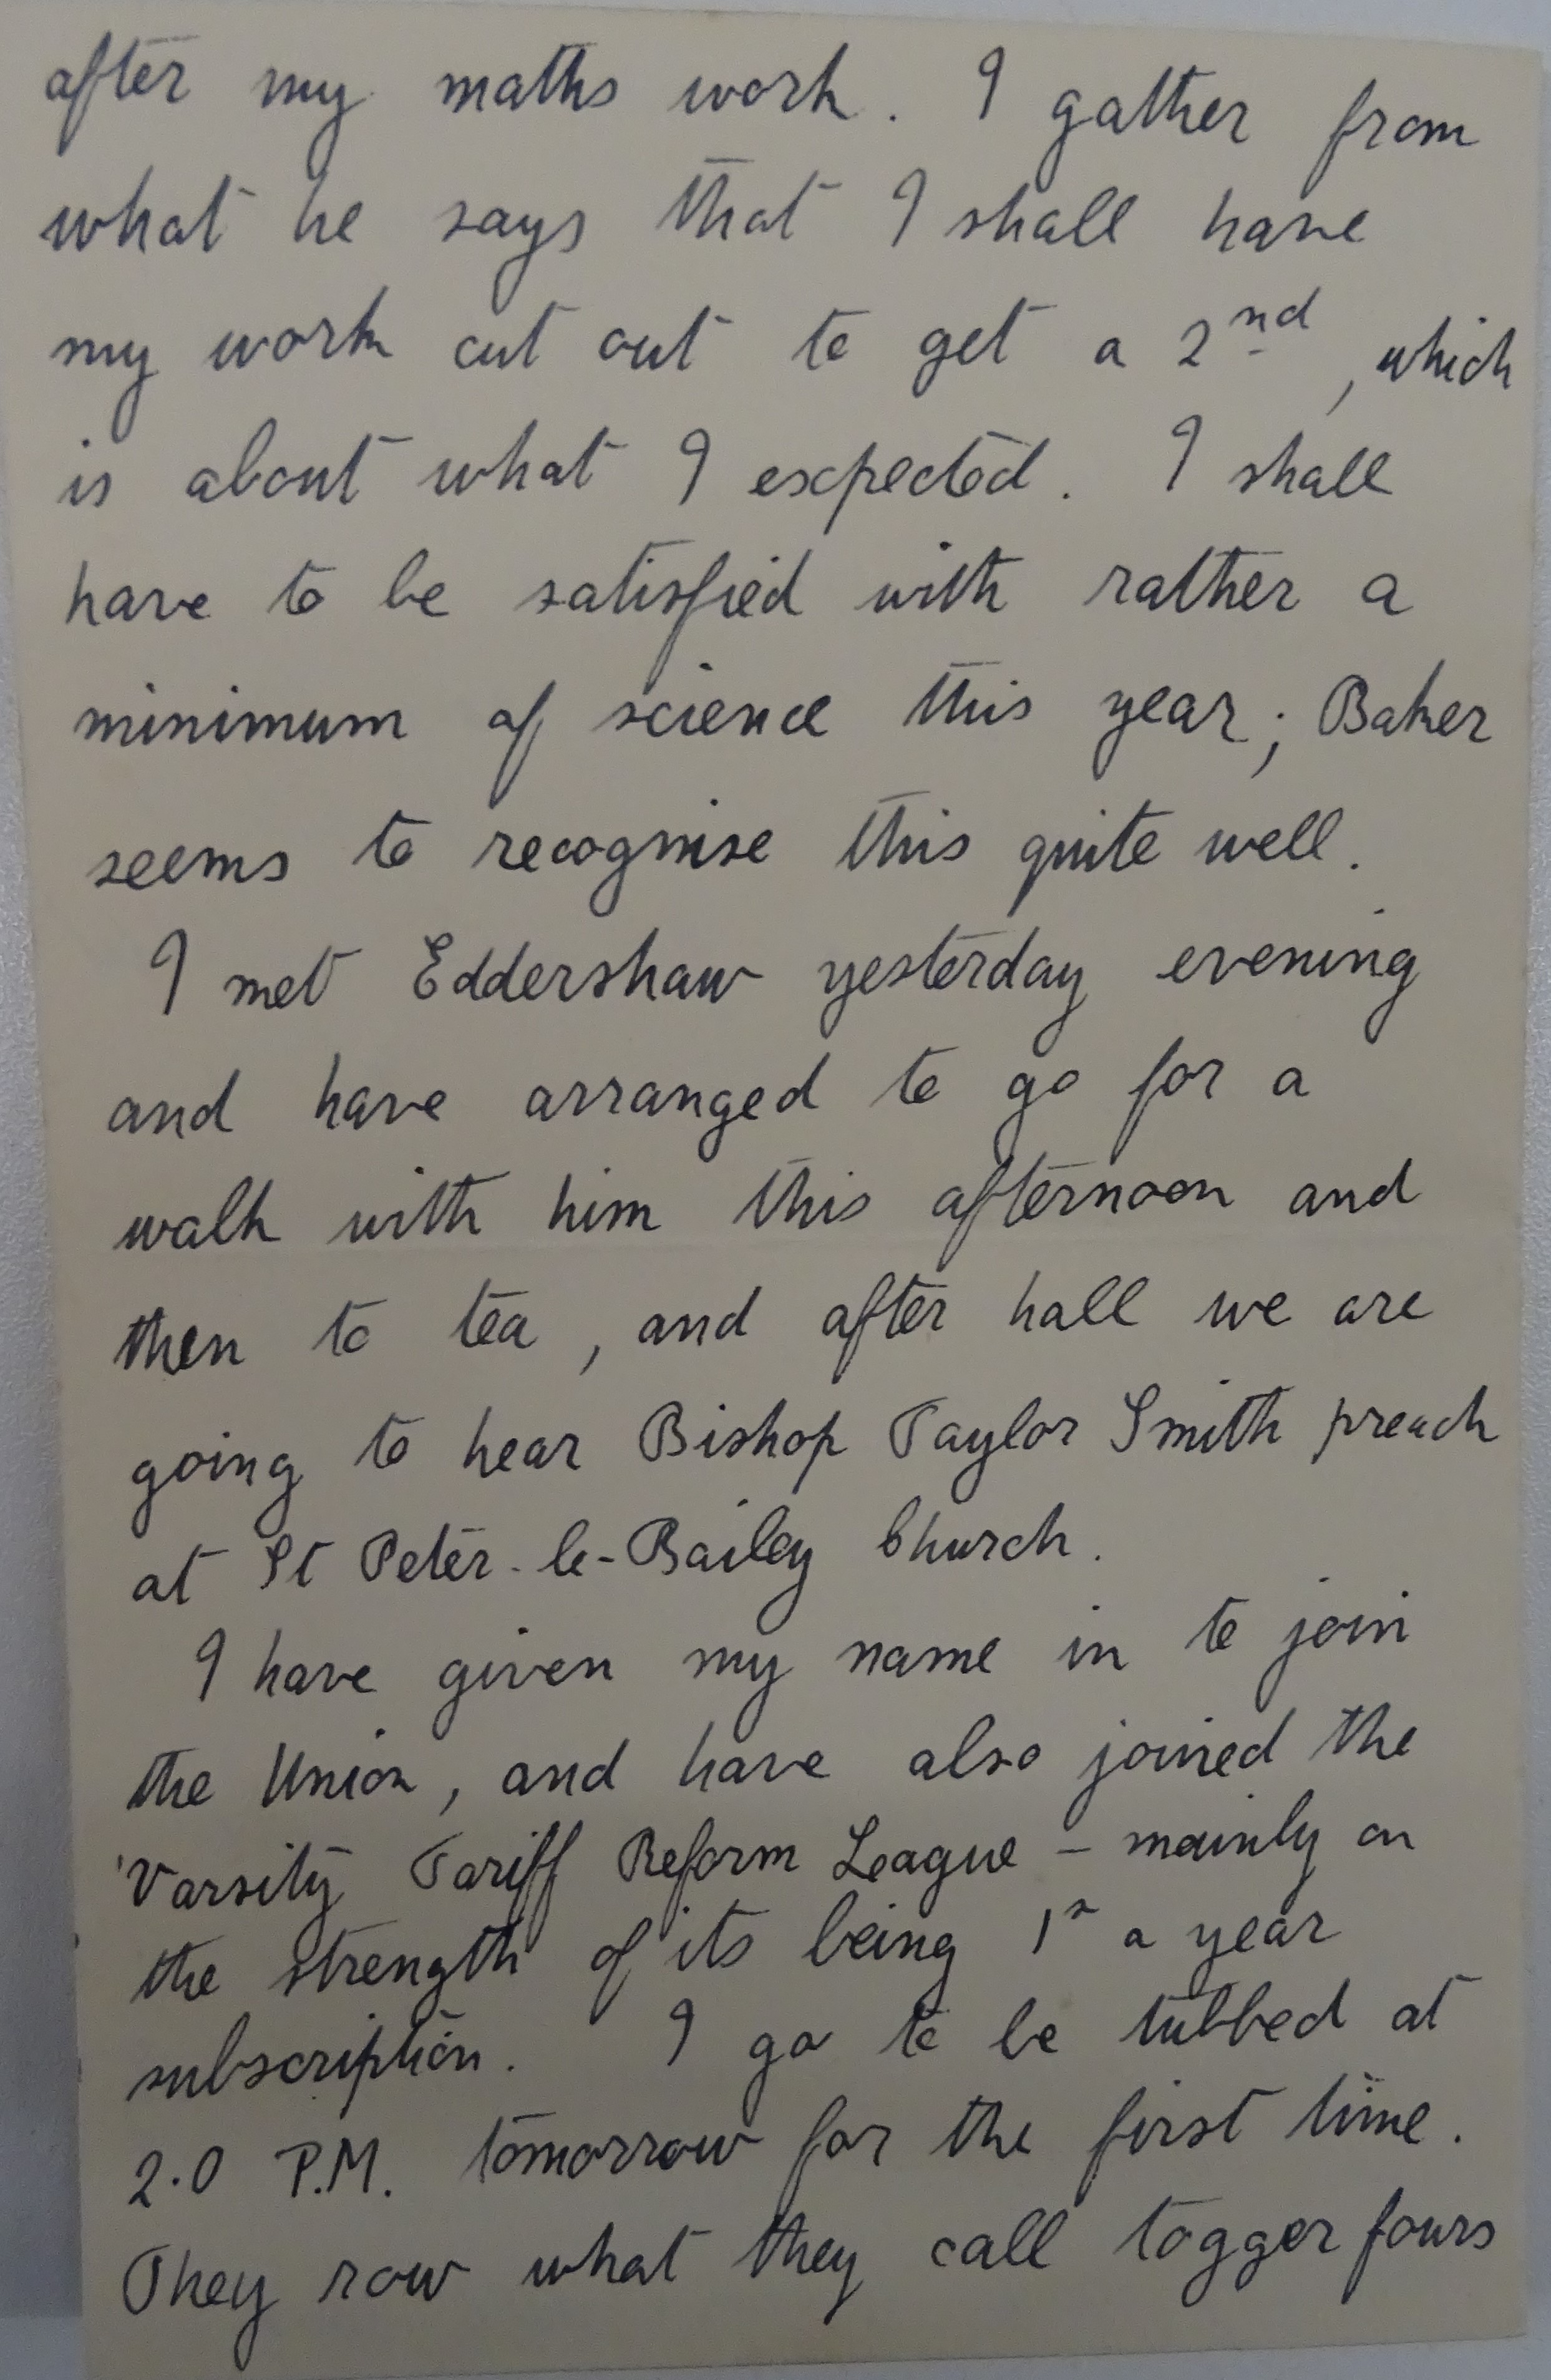 after my maths work. I gather from
what he says that I shall have
my work cut out to get a 2nd, which
is about what I expected. I shall
have to be satisfied with rather a
minimum of science this year; Baker
seems to recognise this quite well.
I met Eddershaw yesterday evening
and have arranged to go for a
walk with him this afternoon and
then to tea, and after hall we are
going to hear Bishop Taylor Smith preach
at St Peter-le-Bailey Church.
I have given my name in to join
the Union, and have also joined the
'Varsity Tariff Reform League - mainly on
the strength of its being 1s a year
subscription. I go to be tubbed at
2.0 P.M. tomorrow for the first time.
They row what they call togger fours